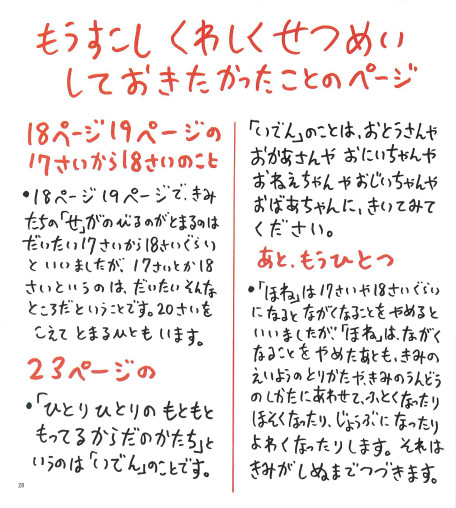 もうすこし くわしくせつめい
しておきたかったことのページ
18ページ19ページの
17さいから18さいのこと
•18ページ19ページで、きみ
たちの「せ」がのびるのがとまるのは
だいたい17さいから18さいぐらい
といいましたが、17さいとか18
さいというのは、だいたいそんな
ところだということです。20さいを
こえてとまるひとも います。
23ページの
•「ひとりひとりの もともと
もってるからだのかたち」と
いうのは「いでん」のことです。
「いでん」のことは、おとうさんや
おかあさんや おにいちゃんや
おねえちゃんやおじいちゃんや
おばあちゃんに、きいてみて
ください。
あと、もうひとつ
•「ほね」は17さいや18さいぐらい
になるとながくなることをやめると
いいましたが、「ほね」は、ながく
なることをやめたあとも、きみの
えいようのとりかたや、きみのうんどう
のしかたにあわせて、ふとくなったり
ほそくなったり、じょうぶになったり
よわくなったりします。それは
きみがしぬまでつづきます。
28